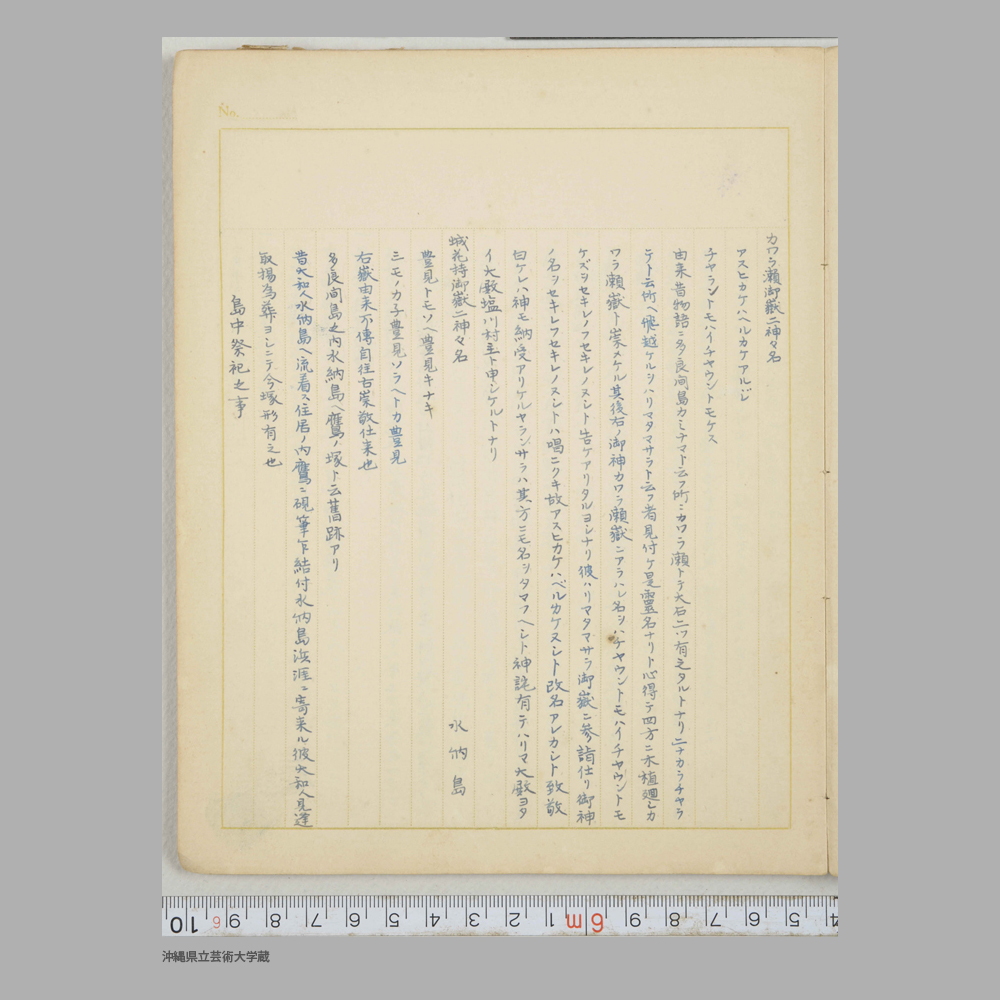 No.
カワラ瀬御嶽二神々名
アスヒカケハベルカケアルジ
チヤラントモハイチヤウントモケス
由来昔物語ニ多良間島カミナマト云フ所ニカワラ瀬トテ大石二ツ有之タルトナリ二ナカラチヤラ
テト云所ヘ飛越ケルヲハリマタマサラト云フ者見付ケ是霊名ナリト心得テ四方ニ木植廻シカ
ワラ瀬嶽ト崇メケル其後右ノ御神カワラ瀬嶽ニアラハレ名ヲハチヤウントモハイチヤウントモ
ケズシセキレノフセキレノヌシト告ケアリタルヨシナリ彼ハリマタマサラ御嶽ニ参詣仕リ御神
ノ名シセキレフセキレノヌシトハ唱ニクキ故アスヒカケハベルカケヌシト改名アレカシト致敬
白ケレハ神モ納受アリケルヤランサラハ其方ニモ名ヲタマフヘシト神託有テハリマ大殿ヨタ
イ大殿塩川村主ト申シケルトナリ
城花持御嶽二神々名 水納島
豊見トモソヘ豊見キナキ
ミモノカ子豊見ソラヘトカ豊見
右嶽由来不傳自往古崇敬仕来也
多良間島之内水納島ヘ鷹ノ塚ト云旧跡アリ
昔大和人水納島ヘ流着ス住居ノ内鷹ニ硯筆ヲ結付水納島浜涯ニ寄来ル彼大和人見逢
取揚為葬ヨシニテ今塚形有之也
島中祭祀之事
10 9 8 7 6 5 4 3 2 1 6m 9 8 7 6 5 4
沖縄県立芸術大学蔵